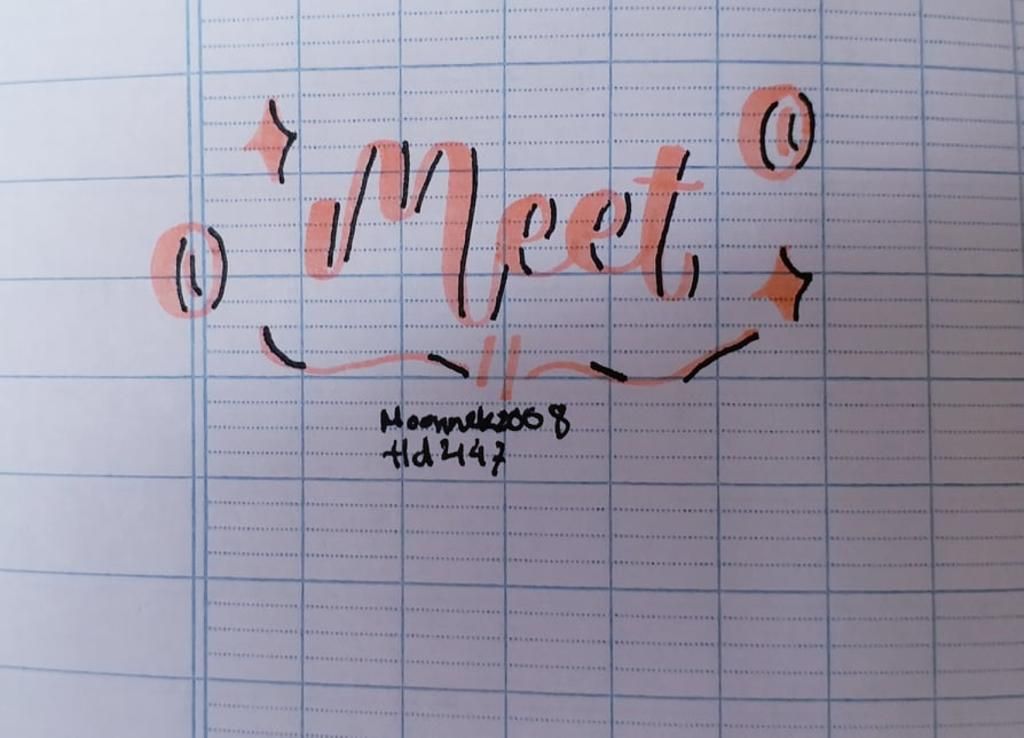 Meet
Moonnek2008
Hd2447